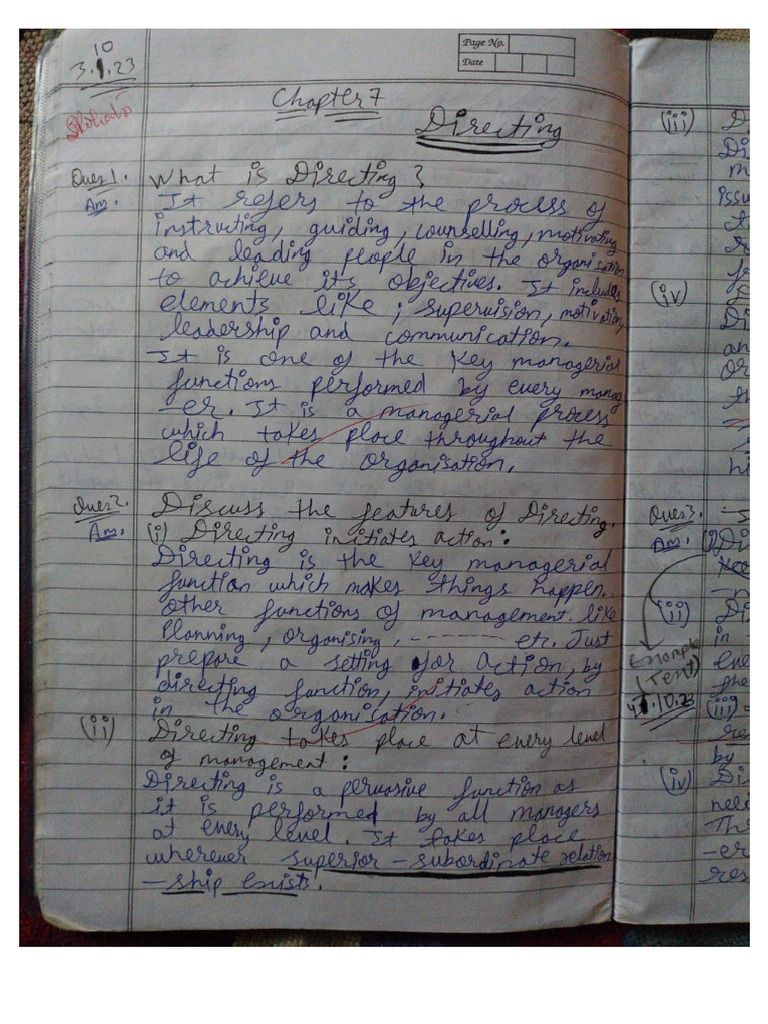 Page No.
Date
10
3.1.23
Chapter 7
Directing
Ques 1. What is Directing?
Ans. It refers to the process of
instructing, guiding, counselling, motivating
and leading people in the organisation
to achieve its objectives. It includes
elements like; supervision, motivation,
leadership and communication.
It is one of the key managerial
functions performed by every manag
-er. It is a managerial process
which takes place throughout the
life of the organisation.
Ques 2. Discuss the features of Directing.
Ans. (i) Directing initiates action:
Directing is the key managerial
function which makes things happen.
Other functions of management like
Planning, organising, ------- etc. Just
prepare a setting for action, by
directing function, initiates action
in the organication.
(ii) Directing takes place at every level
of management:
Directing is a pervasive function as
it is performed by all managers
at every level. It takes place
wherever superior - subordinate relation
-ship exists.
(iii)
issu
(iv)
an
Ques 3.
Ans. (i) Di
(ii) Di
in
Example
(Text)
10.23
(iii)
by
(iv) Di
need
-er
res